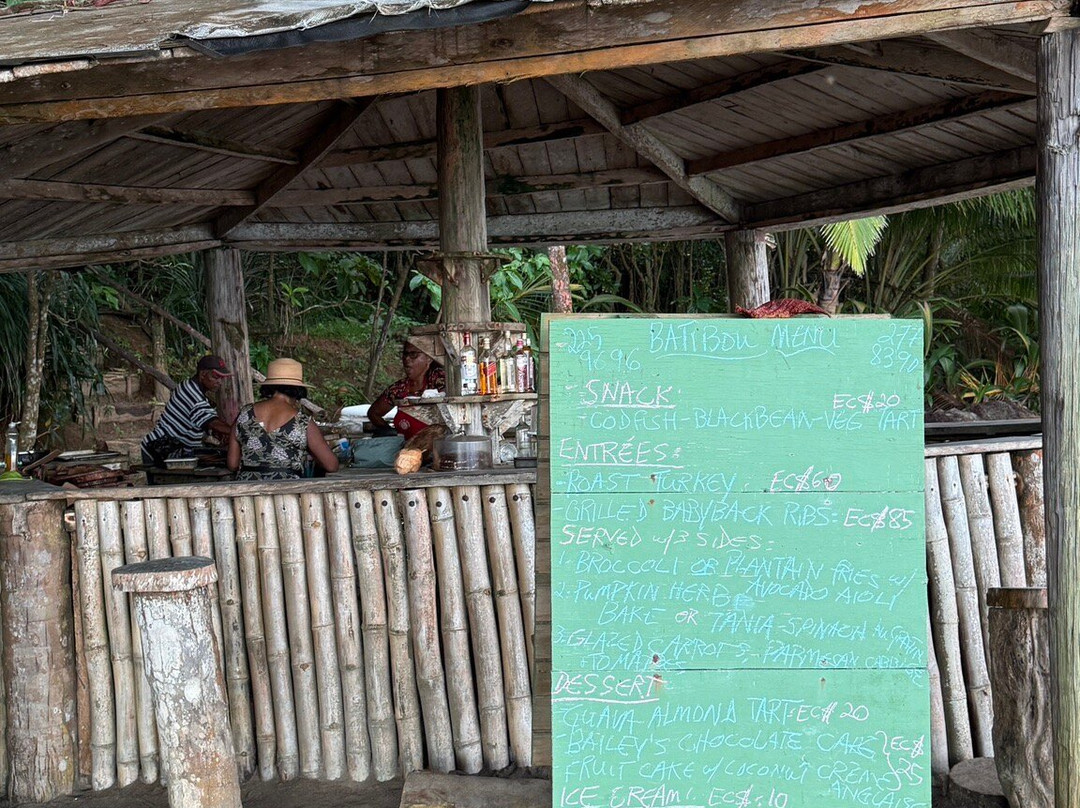 225 BATIBOU MENU 277
9696 8390
- SNACK:
EC$20
- CODFISH-BLACKBEAN-VEG TART
ENTRÉES:
- ROAST TURKEY: EC$60
- GRILLED BABYBACK RIBS: EC$85
SERVED w/ 3 SIDES:
1. BROCCOLI OR PLANTAIN FRIES w/
AVOCADO AIOLI
2. PUMPKIN HERB
BAKE OR TANIA-SPINACH AU GRATIN
3. GLAZED CARROTS - PARMESAN CABBAGE
- TOMATOES
DESSERT:
- GUAVA ALMOND TART: EC$20
- BAILEY'S CHOCOLATE CAKE EC$
FRUIT CAKE w/ COCONUT CREME 25
ANGLAISE
ICE CREAM: EC$10